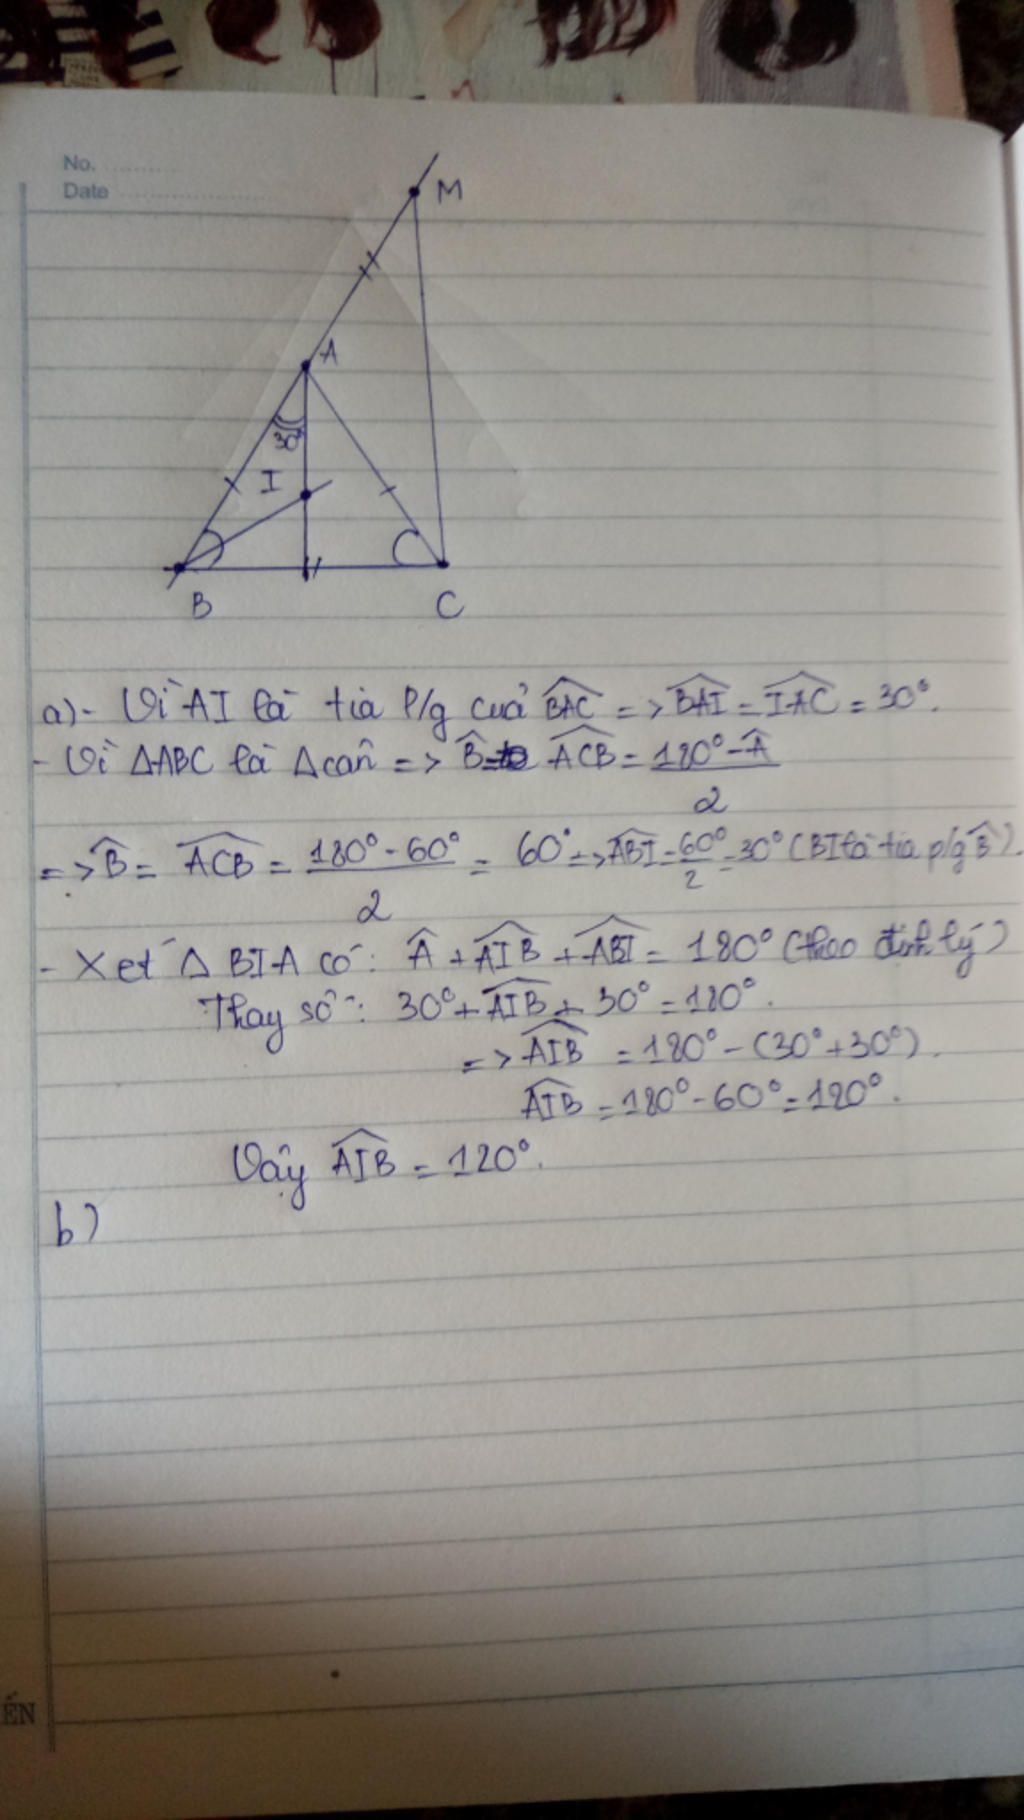 No. ............
Date ........................
M
A
30°
I
B
C
a)- Vì AI là tia p/g của BAC => BAI = IAC = 30°.
- Vì ΔABC là Δ cân => B = ACB = 180° - A / 2
=> B = ACB = 180° - 60° / 2 = 60° => ABI = 60° / 2 = 30° (BI là tia p/g B).
- Xét Δ BIA có: A + AIB + ABI = 180° (theo định lý)
Thay số: 30° + AIB + 30° = 180°.
=> AIB = 180° - (30° + 30°).
AIB = 180° - 60° = 120°.
Vậy AIB = 120°.
b)
ẾN